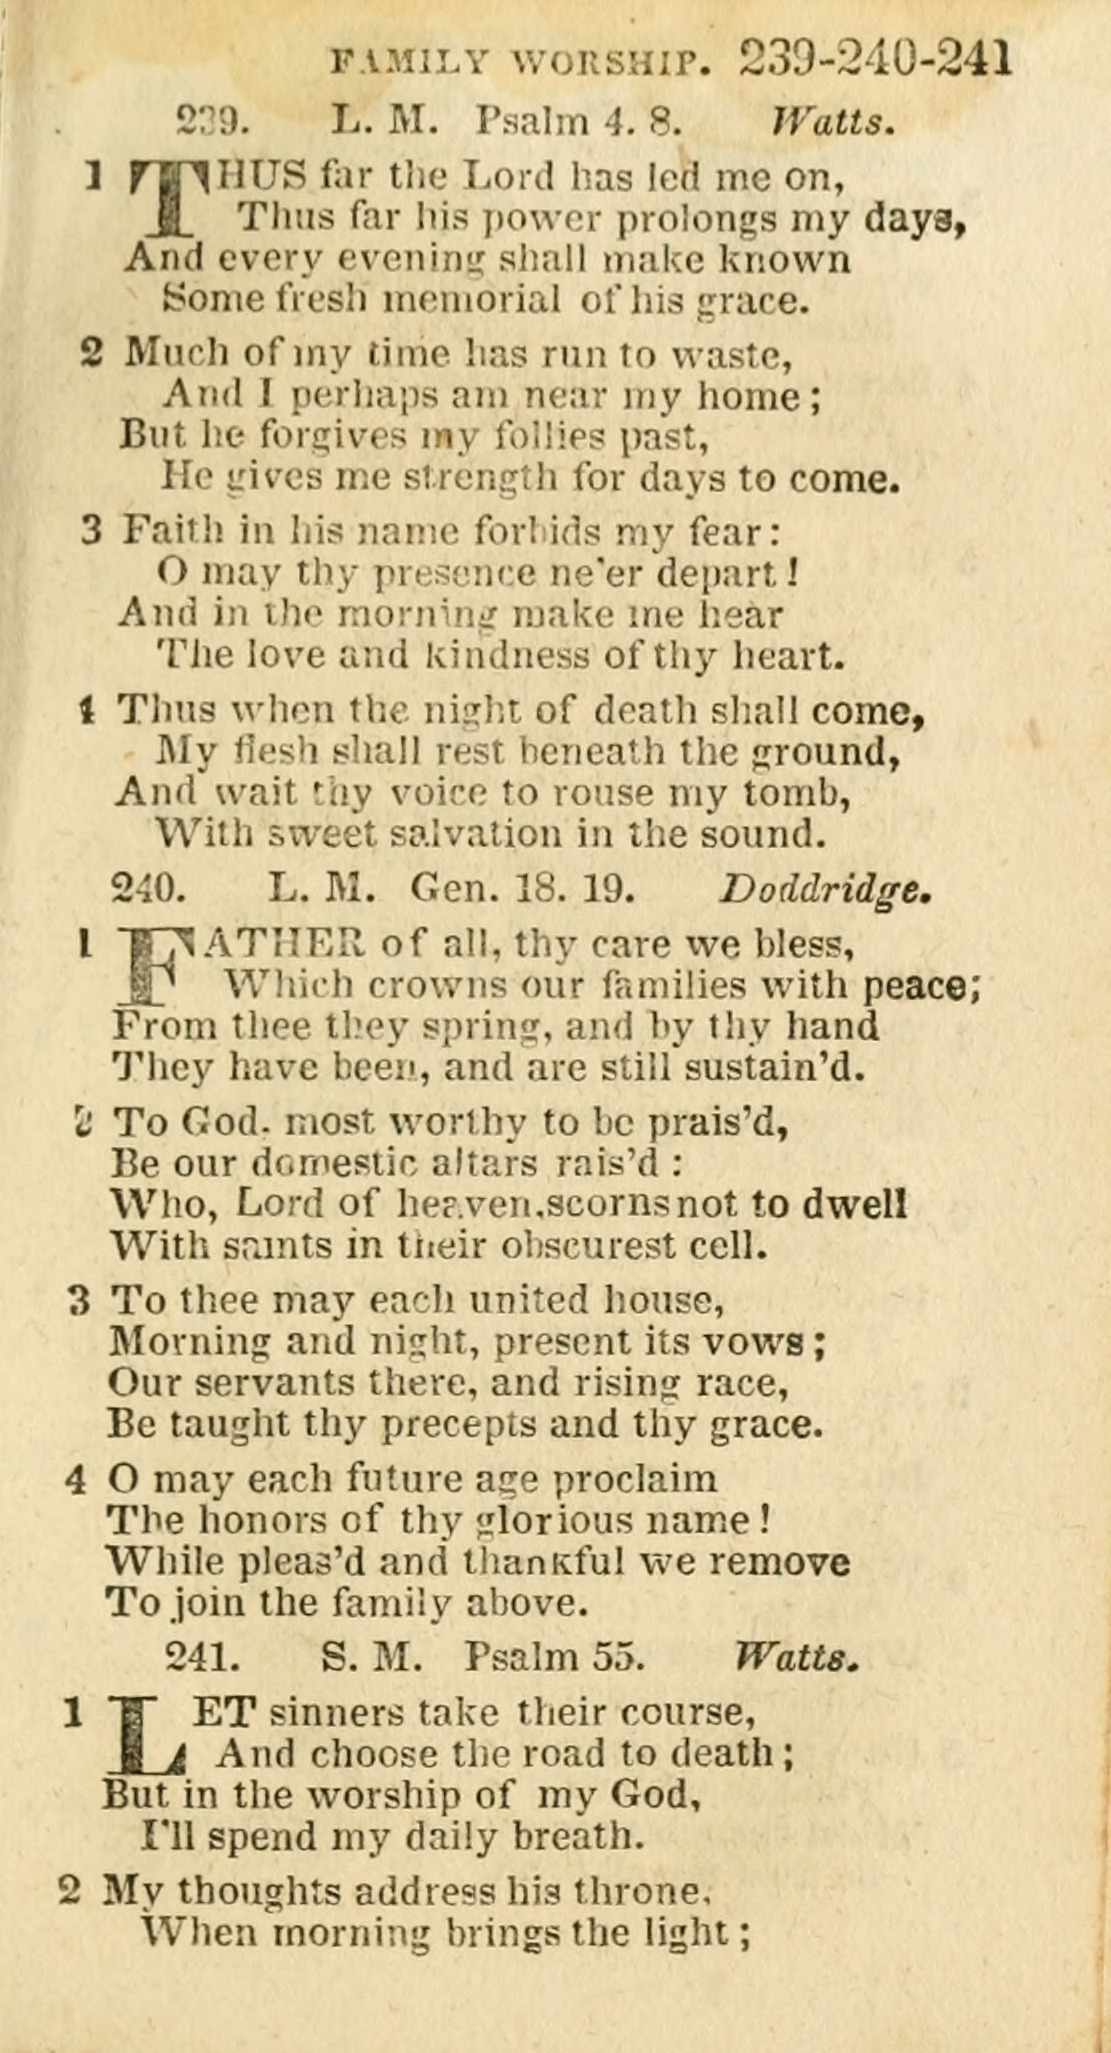 FAMILY WORSHIP. 239-240-241
239. L. M. Psalm 4. 8. Watts.
1 THUS far the Lord has led me on,
Thus far his power prolongs my days,
And every evening shall make known
Some fresh memorial of his grace.
2 Much of my time has run to waste,
And I perhaps am near my home;
But he forgives my follies past,
He gives me strength for days to come.
3 Faith in his name forbids my fear:
O may thy presence ne'er depart!
And in the morning make me hear
The love and kindness of thy heart.
4 Thus when the night of death shall come,
My flesh shall rest beneath the ground,
And wait thy voice to rouse my tomb,
With sweet salvation in the sound.
240. L. M. Gen. 18. 19. Doddridge.
1 FATHER of all, thy care we bless,
Which crowns our families with peace;
From thee they spring, and by thy hand
They have been, and are still sustain'd.
2 To God. most worthy to be prais'd,
Be our domestic altars rais'd :
Who, Lord of heaven, scorns not to dwell
With saints in their obscurest cell.
3 To thee may each united house,
Morning and night, present its vows;
Our servants there, and rising race,
Be taught thy precepts and thy grace.
4 O may each future age proclaim
The honors of thy glorious name!
While pleas'd and thankful we remove
To join the family above.
241. S. M. Psalm 55. Watts.
1 LET sinners take their course,
And choose the road to death;
But in the worship of my God,
I'll spend my daily breath.
2 My thoughts address his throne,
When morning brings the light;